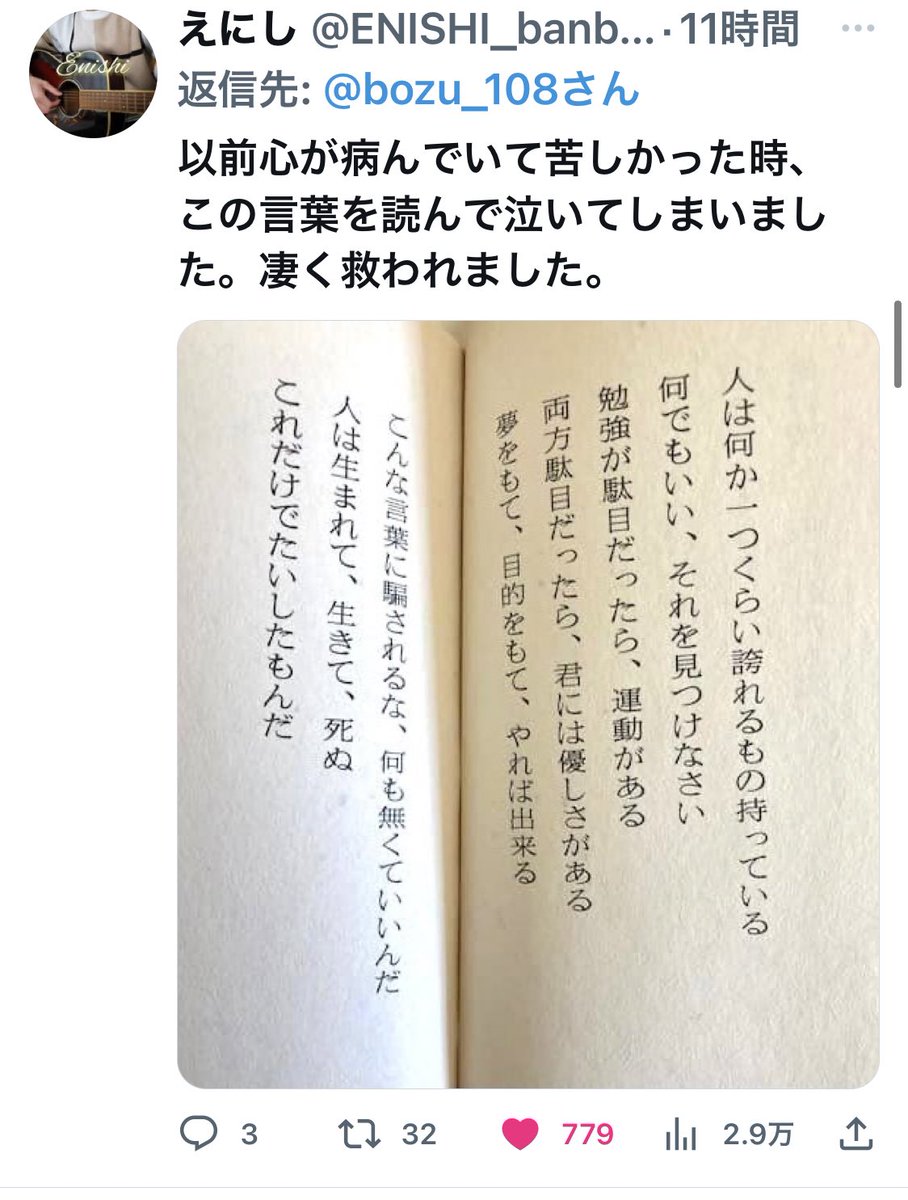 えにし @ENISHI_banb... · 11時間
返信先: @bozu_108さん
以前心が病んでいて苦しかった時、
この言葉を読んで泣いてしまいまし
た。凄く救われました。
Enishi
人は何か一つくらい誇れるもの持っている
何でもいい、それを見つけなさい
勉強が駄目だったら、運動がある
両方駄目だったら、君には優しさがある
夢をもて、目的をもて、やれば出来る
こんな言葉に騙されるな、何も無くていいんだ
人は生まれて、生きて、死ぬ
これだけでたいしたもんだ
3 32 779 2.9万